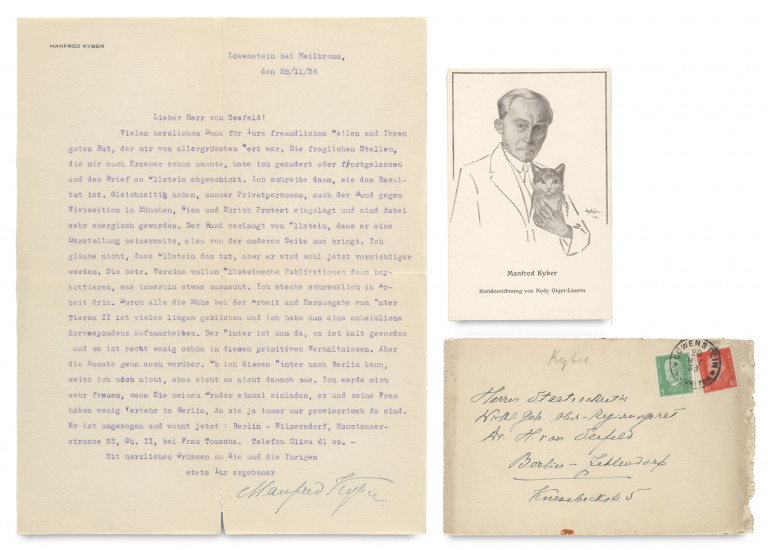 MANFRED KYBER
Löwenstein bei Heilbronn,
den 28/11/26
Lieber Herr von Seefeld!
Vielen herzlichen Dank für Ihre freundlichen Zeilen und Ihren
guten Rat, der mir von allergrösstem Wert war. Die fraglichen Stellen,
die mir auch Kraemer schon nannte, habe ich geändert oder fortgelassen
und den Brief an Ullstein abgeschickt. Ich schreibe dann, wie das Resul-
tat ist. Gleichzeitig haben, ausser Privatpersonen, auch der Bund gegen
Vivisektion in München, Wien und Zürich Protest eingelegt und sind dabei
sehr energisch geworden. Der Bund verlangt von Ullstein, dass er eine
Darstellung seinerseits, also von der anderen Seite aus bringt. Ich
glaube nicht, dass Ullstein das tut, aber er wird wohl jetzt vorsichtiger
werden. Die betr. Vereine wollen Ullsteinsche Publikationen dann boy-
kottieren, was immerhin etwas ausmacht. Ich stecke schrecklich in Ar-
beit drin. Durch alle die Mühe bei der Arbeit und Herausgabe von Unter
Tieren II ist vieles liegen geblieben und ich habe nun eine unheimliche
Korrespondenz aufzuarbeiten. Der Winter ist nun da, es ist kalt geworden
und es ist recht wenig schön in diesen primitiven Verhältnissen. Aber
die Monate gehn auch vorüber. Ob ich diesen Winter nach Berlin kann,
weiss ich noch nicht, eben sieht es nicht danach aus. Ich werde mich
sehr freuen, wenn Sie meinen Bruder einmal einladen, er und seine Frau
haben wenig Verkehr in Berlin, da sie ja immer nur provisorisch da sind.
Er ist umgezogen und wohnt jetzt: Berlin - Wilmersdorf, Konstanzer-
strasse 53, Gh. II, bei Frau Tomscha. Telefon Oliva 61 00. -
Mit herzlichen Grüssen an Sie und die Ihrigen
stets Ihr ergebener
Manfred Kyber.
Manfred Kyber
Kreidezeichnung von Hedy Giger-Luzern
Kyber
LÖWENSTEIN
Herrn Staatssekretär
Ober-Regierungsrat
Dr. H. von Seefeld
Berlin-Zehlendorf
Knesebeckstr. 5